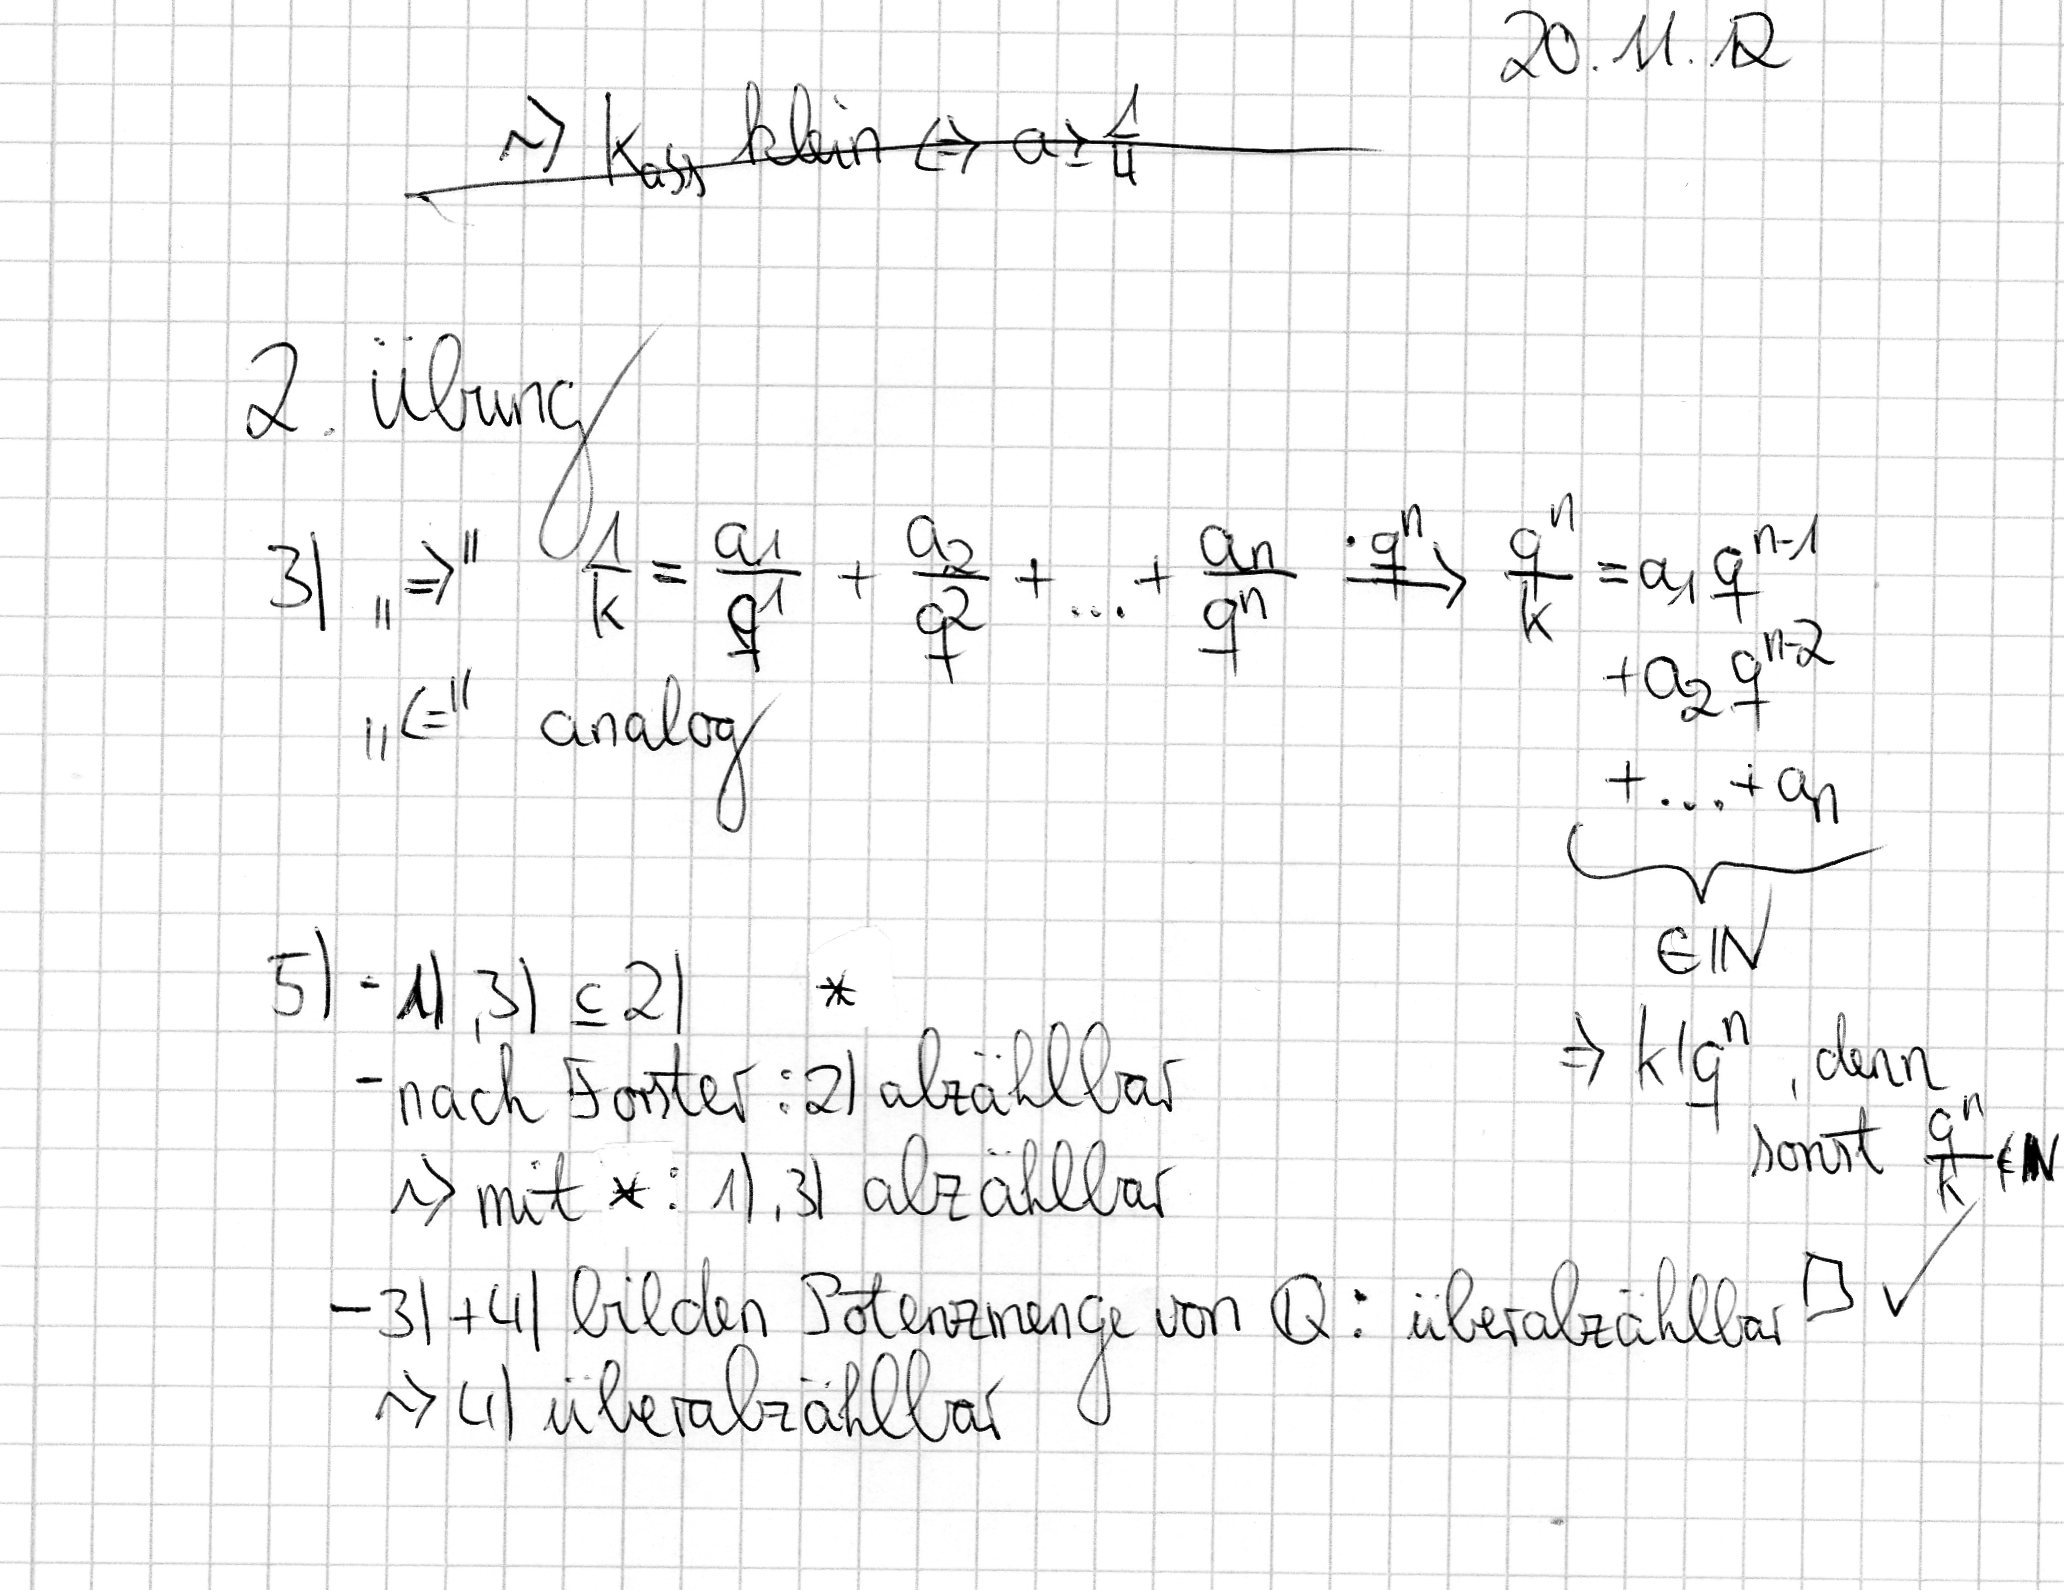 20.11.12
~> K_ass klein <=> a ≥ 1/4
2. Übung
3) „=>" 1/k = a_1/q^1 + a_2/q^2 + ... + a_n/q^n —·q^n—> q^n/k = a_1 q^(n-1)
+ a_2 q^(n-2)
+ ... + a_n
„<=" analog
∈ ℕ
=> k | q^n, denn
sonst q^n/k ∉ ℕ
5) - 1), 3) ⊆ 2) *
- nach Forster: 2) abzählbar
~> mit *: 1), 3) abzählbar
- 3) + 4) bilden Potenzmenge von ℚ: überabzählbar □ ✓
~> 4) überabzählbar